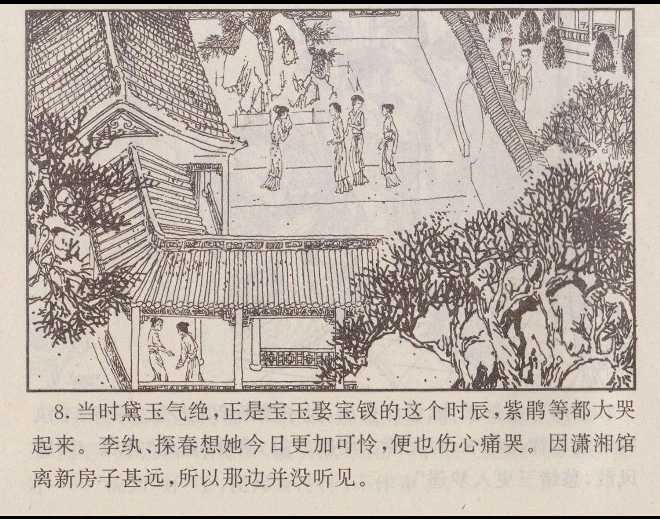 8. 当时黛玉气绝,正是宝玉娶宝钗的这个时辰,紫鹃等都大哭
起来。李纨、探春想她今日更加可怜,便也伤心痛哭。因潇湘馆
离新房子甚远,所以那边并没听见。